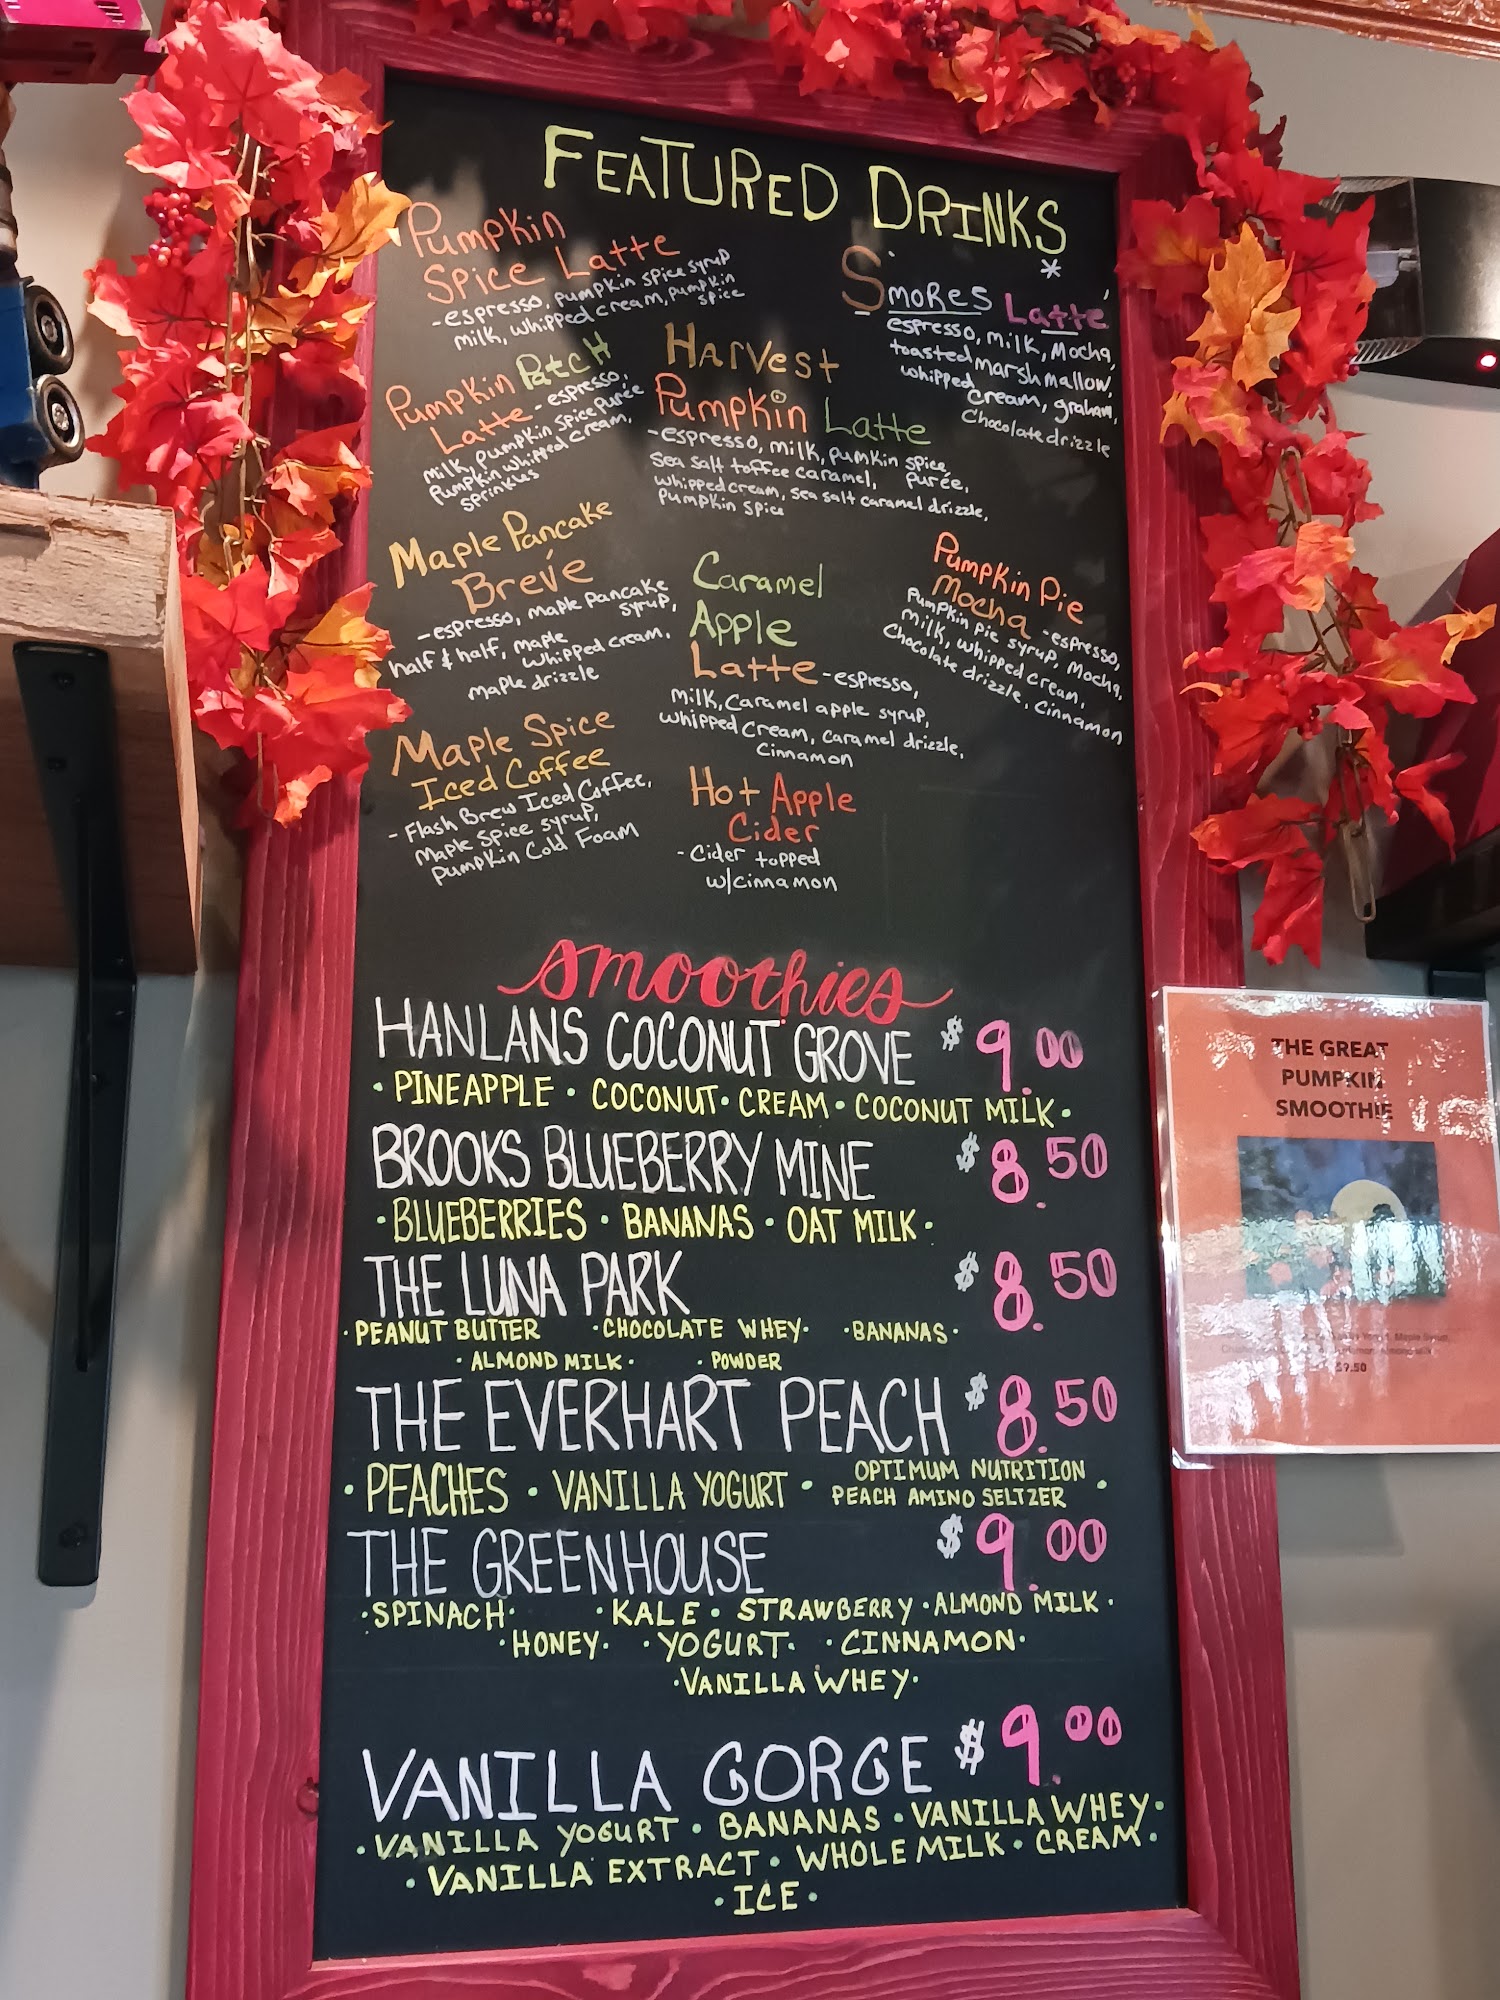 FEATURED DRINKS
Pumpkin
Spice Latte
-espresso, pumpkin spice syrup
milk, whipped cream, pumpkin
spice
S'moRes Latte
*
espresso, milk, Mocha,
toasted marshmallow,
whipped
cream, graham,
Chocolate drizzle
Pumpkin Patch
Latte - espresso,
milk, pumpkin spice purée
Pumpkin whipped cream,
sprinkles
Harvest
Pumpkin Latte
-espresso, milk, pumkin spice
sea salt toffee caramel, purée,
whipped cream, sea salt caramel drizzle,
pumpkin spice
Maple Pancake
Brevé
-espresso, maple pancake
syrup,
half & half, maple
whipped cream,
maple drizzle
Caramel
Apple
Latte -espresso,
milk, Caramel apple syrup,
whipped cream, caramel drizzle,
cinnamon
Pumpkin Pie
Mocha -espresso,
Pumpkin pie syrup, Mocha,
milk, whipped cream,
chocolate drizzle, cinnamon
Maple Spice
Iced Coffee
- Flash Brew Iced Coffee,
Maple spice syrup,
pumpkin Cold Foam
Hot Apple
Cider
- Cider topped
w/cinnamon
smoothies
HANLANS COCONUT GROVE $9.00
• PINEAPPLE • COCONUT • CREAM • COCONUT MILK •
BROOKS BLUEBERRY MINE $8.50
• BLUEBERRIES • BANANAS • OAT MILK •
THE LUNA PARK $8.50
• PEANUT BUTTER • CHOCOLATE WHEY • • BANANAS •
• ALMOND MILK • • POWDER
THE EVERHART PEACH $8.50
• PEACHES • VANILLA YOGURT • OPTIMUM NUTRITION
PEACH AMINO SELTZER •
THE GREENHOUSE $9.00
• SPINACH • • KALE • STRAWBERRY • ALMOND MILK •
• HONEY • • YOGURT • • CINNAMON •
• VANILLA WHEY •
VANILLA GORGE $9.00
• VANILLA YOGURT • BANANAS • VANILLA WHEY •
• VANILLA EXTRACT • WHOLE MILK • CREAM •
• ICE •
THE GREAT
PUMPKIN
SMOOTHIE
$9.50